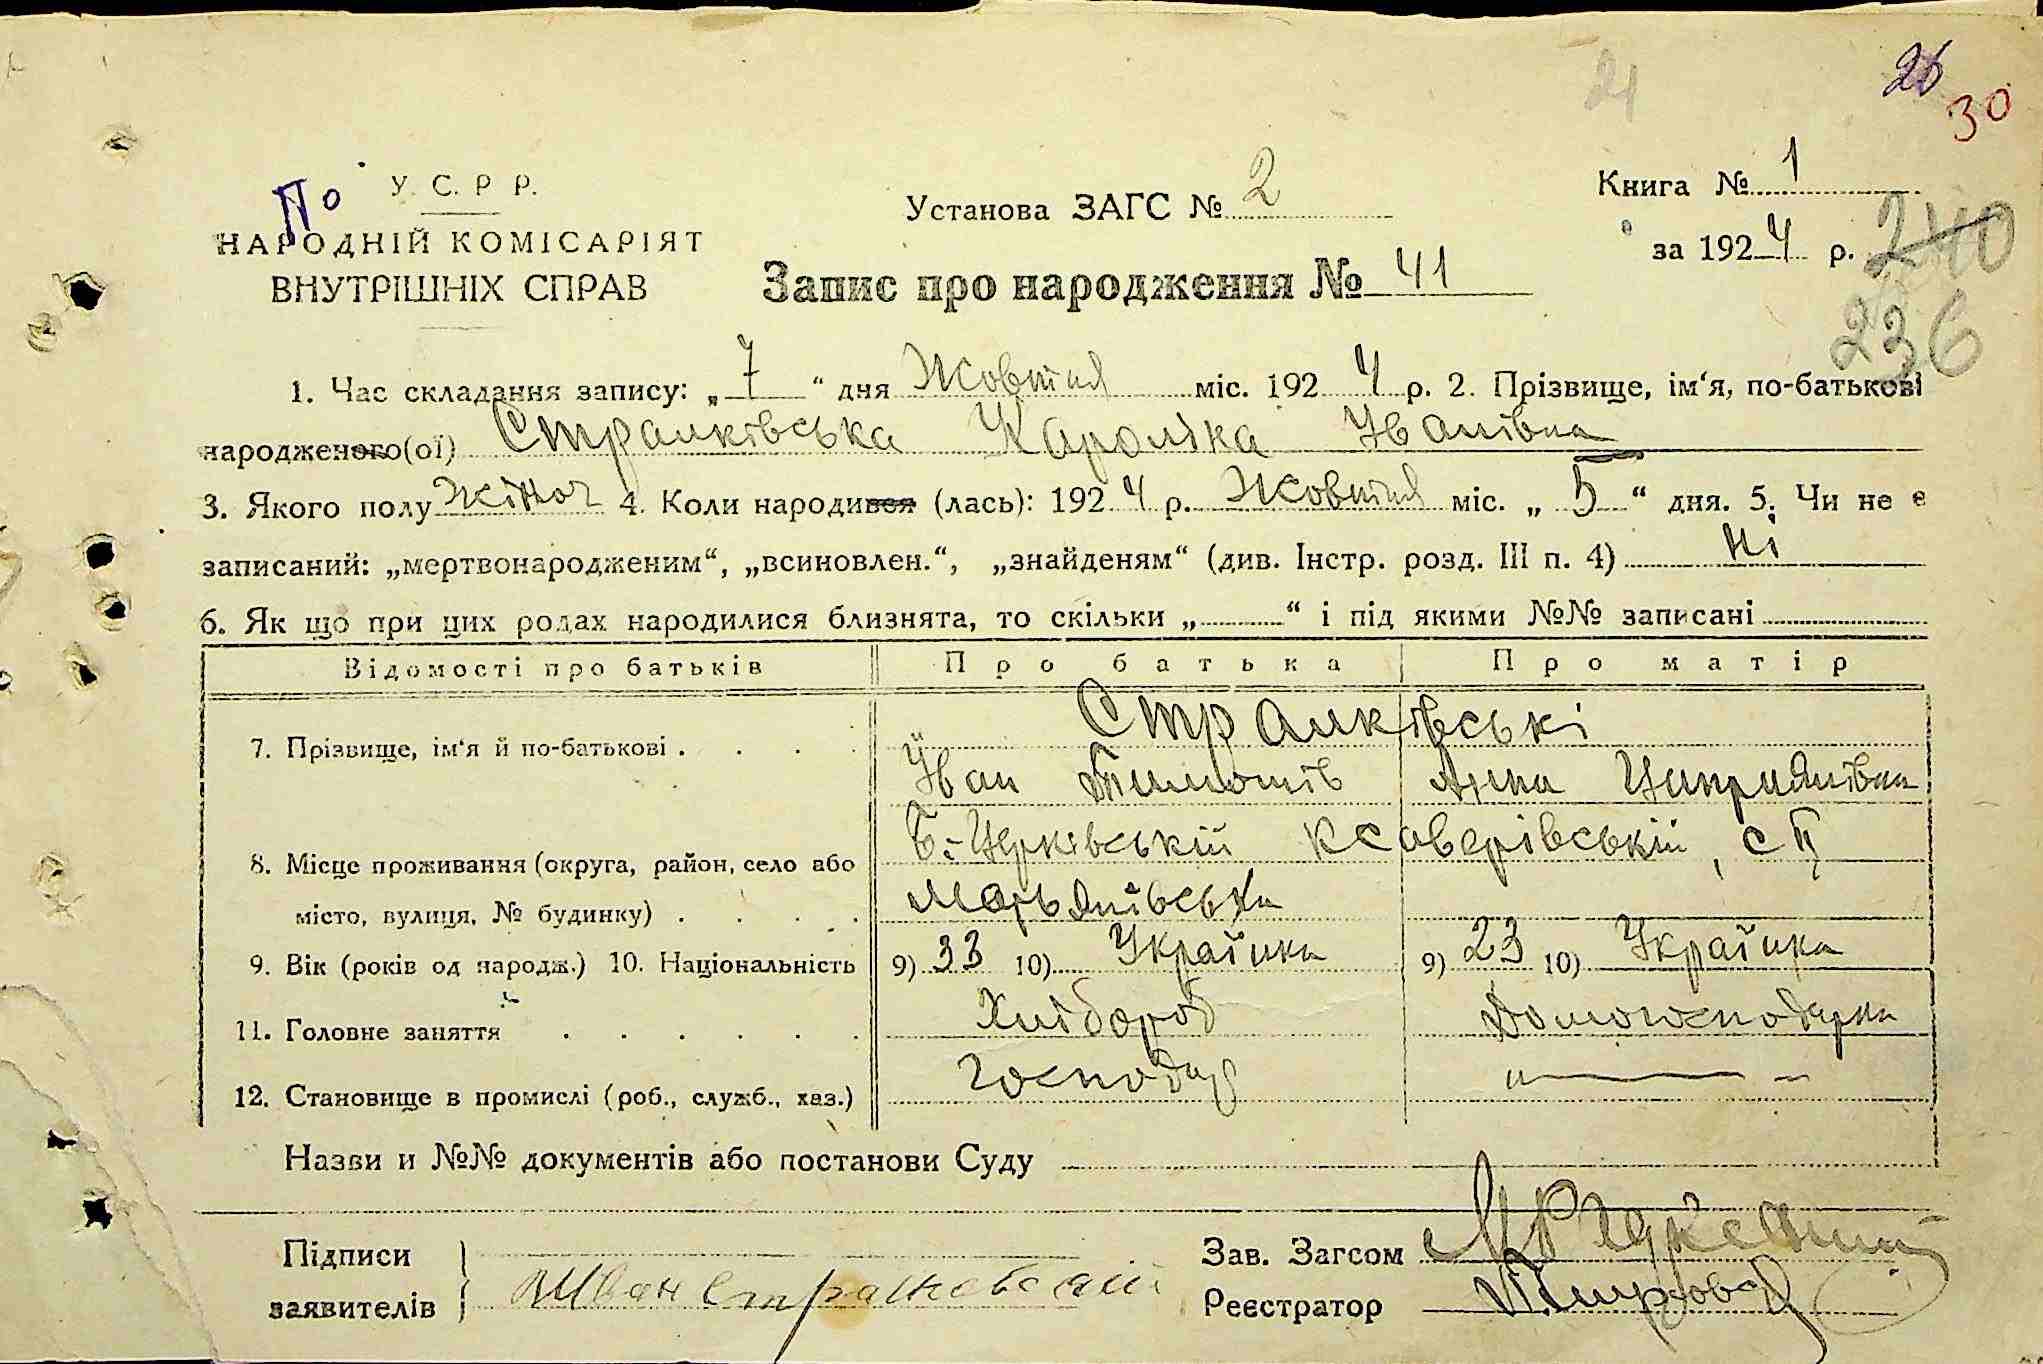 21
26
30
По
У. С. Р Р.
НАРОДНІЙ КОМІСАРІЯТ
ВНУТРІШНІХ СПРАВ
Установа ЗАГС № 2
Запис про народження № 41
Книга № 1
за 1924 р.
240
236
1. Час складання запису: „7“ дня Жовтня міс. 1924 р. 2. Прізвище, ім‘я, по-батькові
народженого(ої) Странківська Кароліка Іванівна
3. Якого полу жіноч 4. Коли народився (лась): 1924 р. Жовтня міс. „5“ дня. 5. Чи не є
записаний: „мертвонародженим“, „всиновлен.“, „знайденям“ (див. Інстр. розд. III п. 4) ні
6. Як що при цих родах народилися близнята, то скільки „ “ і під якими №№ записані
Відомості про батьків Про батька Про матір
Странківські
7. Прізвище, ім‘я й по-батькові . . . .
Іван Тимошів Анна Ципріянівна
Б.-Церківській Ксаверівській, с
8. Місце проживання (округа, район, село або
місто, вулиця, № будинку) . . . . Мар'янівська
9. Вік (років од народж.) 10. Національність 9) 33 10) Україник 9) 23 10) Українка
11. Головне заняття . . . . . . Хлібороб Домогосподарка
12. Становище в промислі (роб., служб., хаз.) господар " —
Назви и №№ документів або постанови Суду
Підписи
заявителів Иван Странковский
Зав. Загсом
Реєстратор